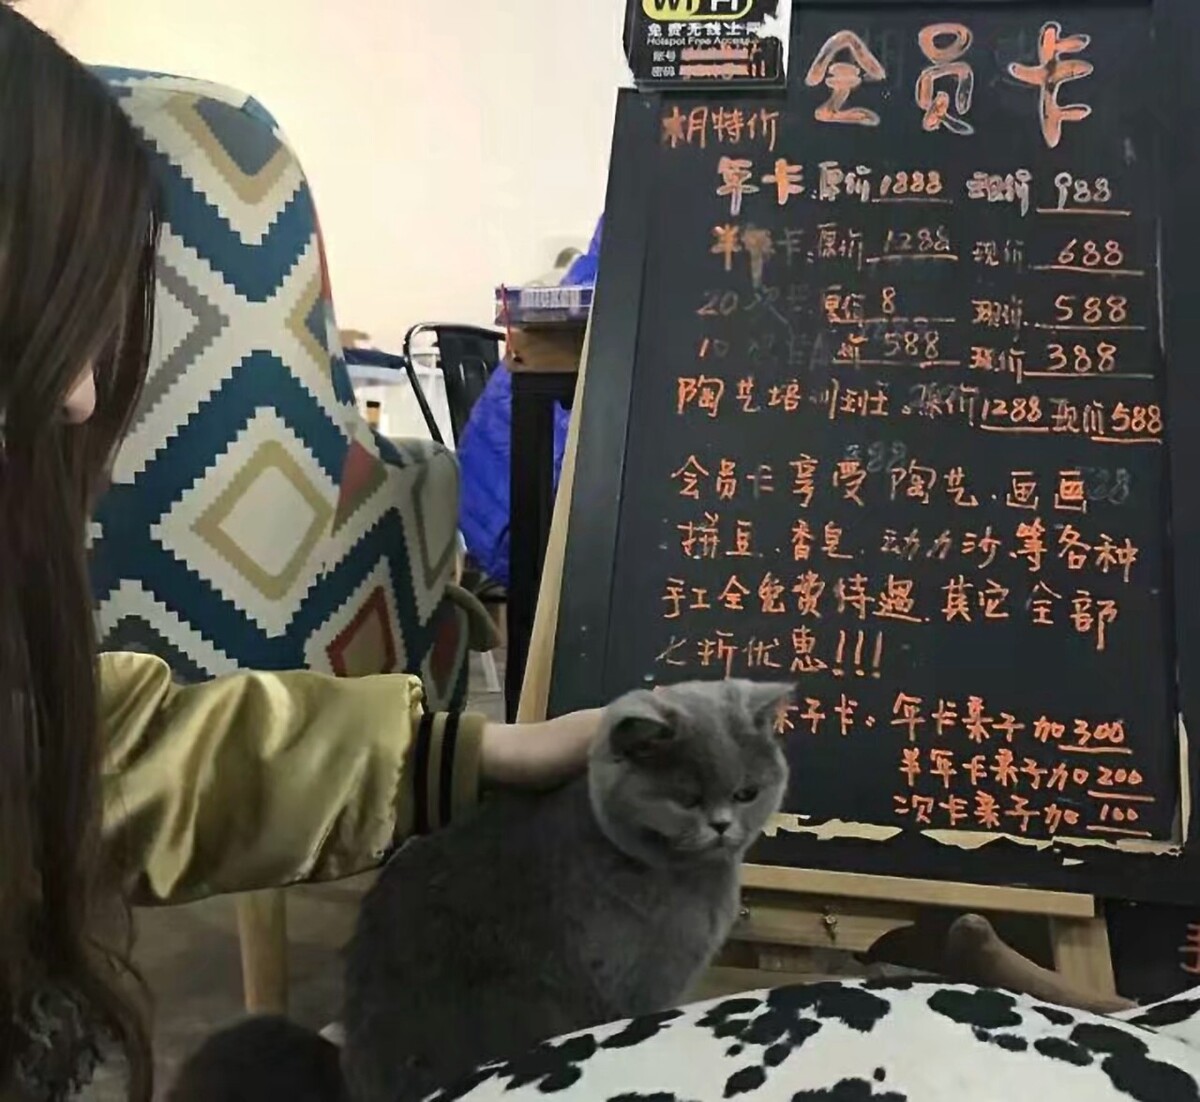 WiFi
免费无线上网
Hotspot Free Access
账号
密码
会员卡
本月特价
年卡.原价1888 现价988
半年卡.原价1288 现价688
20次卡 原价8 现价588
10次卡 价588 现价388
陶艺培训班.原价1288现价588
会员卡享受陶艺.画画
拼豆.香皂.动力沙.等各种
手工全免费待遇.其它全部
七折优惠!!!
亲子卡:年卡亲子加300
半年卡亲子加200
次卡亲子加100